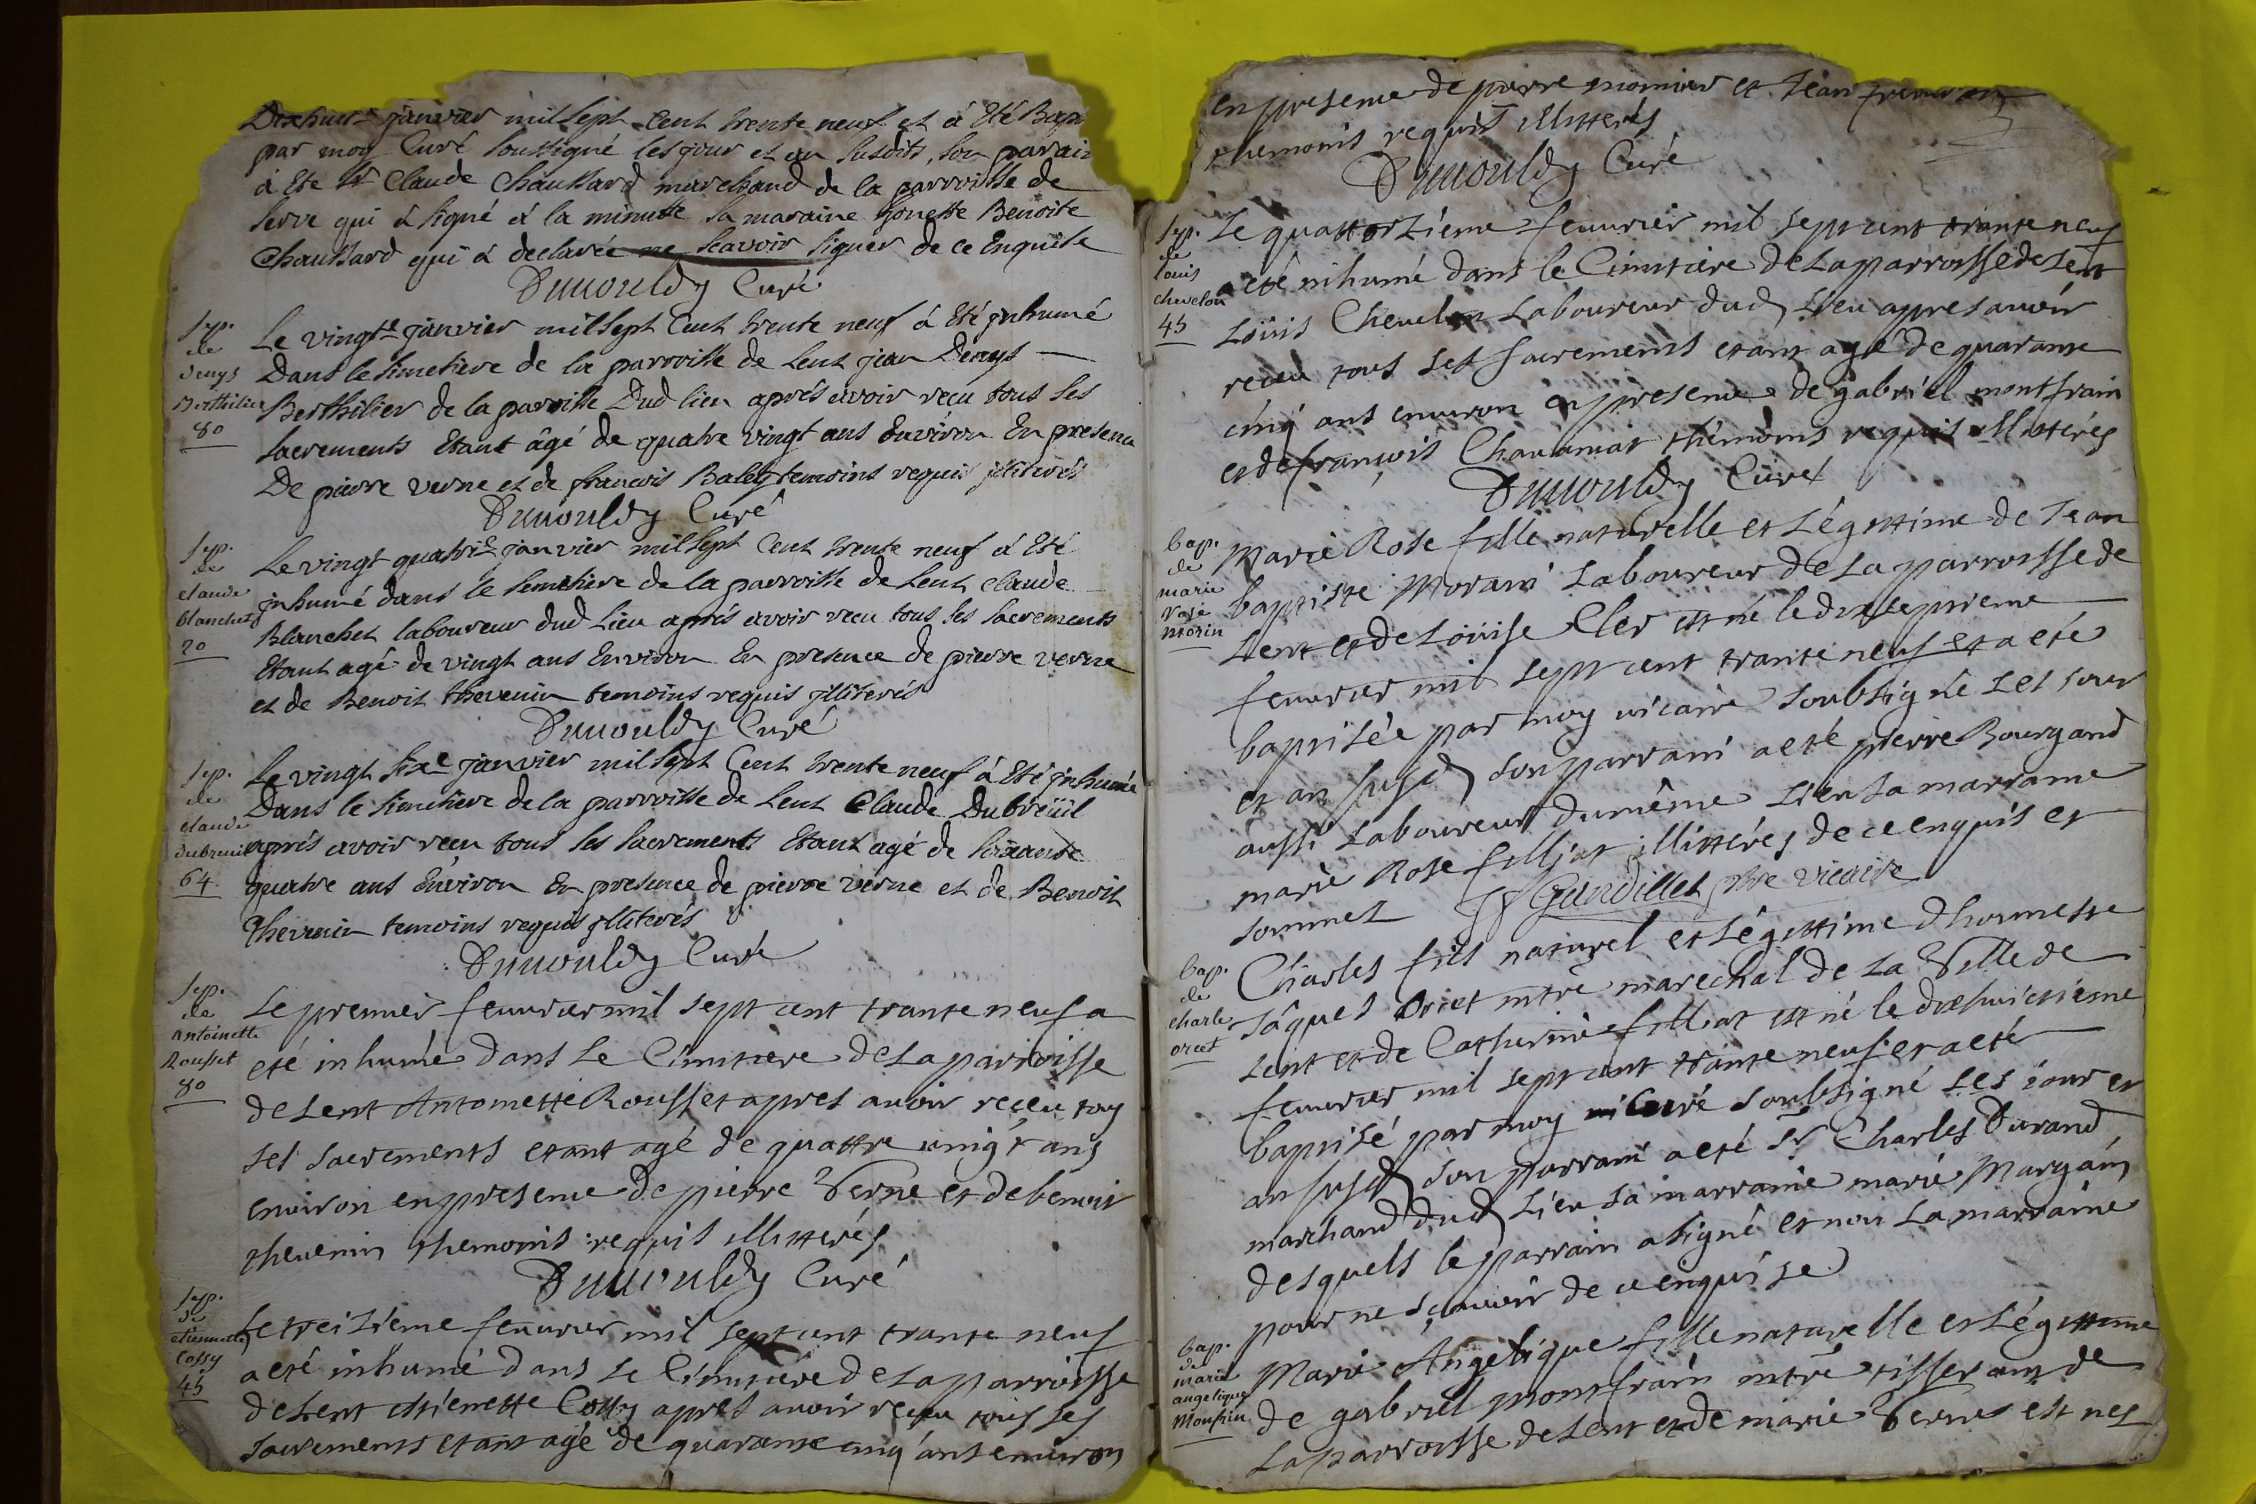 Dixhuit janvier mil sept Cent trente neuf et à Eté Bap
par moy Curé soussigné les jour et an susdits, son parain
à Ete Sr Claude Chaussard marchand de la parroisse de
Serve qui à signé à la minutte sa maraine honette Benoite
Chaussard qui à declarée ne scavoir signer de ce Enquise
Dunouldy Curé
Sep.
de
denys
Berthilier
80
Le vingte janvier mil sept Cent trente neuf à Eté jnhumé
Dans le simetiere de la parroisse de Lent jean Denys
Berthilier de la paroisse Dud lieu aprés avoir recu tous ses
sacrements Etant âgé de quatre vingt ans Environ En presence
De pierre verne et de francois Baley temoins requis jlliterés
Dunouldy Curé
Sep.
de
claude
blanchet
20
Le vingt quatrie janvier mil sept Cent trente neuf à Eté
jnhumé dans le simetiere de la parroisse de Lent Claude
Blanchet laboureur dud Lieu aprés avoir recu tous ses sacrements
Etant agé de vingt ans Environ En presence de pierre verne
et de Benoit thevenin temoins requis jlliterés
Dunouldy Curé
Sep.
de
claude
dubreuil
64
Le vingt sixe janvier mil sept Cent trente neuf à Eté jnhumé
Dans le simetiere de la parroisse de Lent Claude Dubreüil
aprés avoir recu tous ses sacrements Etant agé de soixante
quatre ans Environ En presence de pierre verne et de Benoit
Thevenin temoins requis jlliterés
Dunouldy Curé
Sep.
de
antoinette
Rousset
80
Le premier feuurier mil sept cent trante neuf a
eté inhumé dans le Cimitiere de la parroisse
de Lent Antoinette Rousset apres auoir reçeu tous
ses sacrements etant agé de quattre uingt ans
enuiron en presence de pierre Verne et de benoit
theuenin themoins requis illitterés
Dunouldy Curé
Sep.
de
etiennette
Cossy
45
Le treizième feuurier mil sept cent trante neuf
a eté inhumé dans le Cimitiere de la parroisse
de Lent ettienette Cossy apres auoir reçeu tous ses
sacrements etant agé de quarante cinq ans enuiron
en presence de pierre monnier et Jean
themoins requis illitterés
Dunouldy Curé
Sep.
de
louis
chevelon
45
Le quattorzième feuurier mil sept cent trante neuf
a eté inhumé dans le Cimitiere de la parroisse de Lent
Loüis Cheuelon Laboureur dud Lieu apres auoir
receu tous ses sacrements etant agé de quarante
cinq ans enuiron en presence de gabriel montfrain
et de françois Chanamat thémoins requis illitterés
Dunouldy Curé
bap.
de
marie
rose
morin
Marie Rose fille naturelle et Légittime de Jean
baptiste Morain Laboureur de la parroisse de
Lent et de Loüise Cler est né le dixseptieme
feuurier mil sept cent trante neuf et a eté
baptisée par moy uicaire soubsigné les jour
et an susd son parrain a eté pierre Bourgand
aussi Laboureur du même Lieu sa marraine
marie Rose filliat illittérés de ce enquis et
sommes Gandillet ptre vicaire
bap.
de
charles
orcet
Charles fils naturel et Légittime d honneste
Jâques Orcet mtre marechal de la Ville de
Lent et de Catherine filliat est né le dixhuictieme
feuurier mil sept cent trante neuf et a eté
baptisé par moy Curé soubsigné les iour et
an susd son parrain a eté Sr Charles Durand
marchand dud Lieu sa marraine marie Margain
desquels le parrain a signé et non la marraine
pour ne sçauoir de ce enquise
bap.
de
marie
angelique
Monfrin
Marie Angelique fille naturelle et Légittime
de gabriel montfrain mtre tisseran de
la parroisse de Lent et de marie Verne est neé